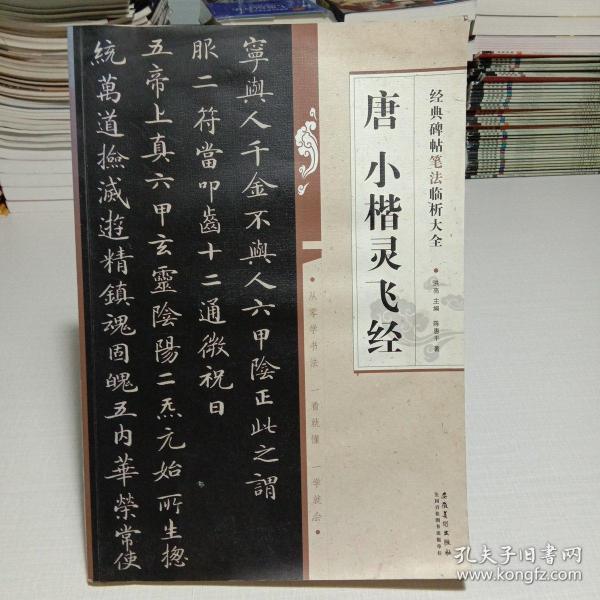 经典碑帖笔法临析大全
唐 小楷灵飞经
洪亮 主编 陈惠丰 著
寧與人千金不與人六甲陰正此之謂
服二符當叩齒十二通微祝曰
五帝上真六甲玄靈陰陽二炁元始所生揔
統萬道撿滅遊精鎮魂固魄五内華榮常使
从零学书法 一看就懂 一学就会
安徽美術出版社
全国百佳图书出版单位
孔夫子旧书网
kongfz.com